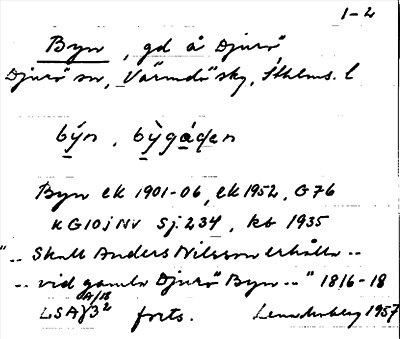 1-2
Byn, gd å Djurö
Djurö sn, Värmdö sky, Sthlms. l
býn, bỳgáden
Byn ek 1901-06, ek 1952, G76
KG10jNv Sj. 234, kb 1935
".. Skall Anders Nilsson erhålla ..
.. vid gamla Djurö Byn .." 1816-18
LSA 3² forts. 1957